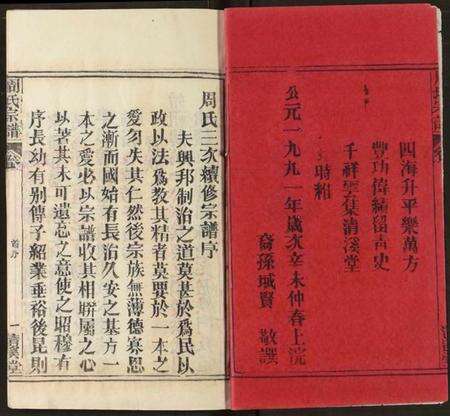 四海升平樂萬方
豐功偉績留古史
千祥雲集清溪堂
時維
公元一九九一年歲次辛未仲春上浣
裔孫域賢 敬譔
周氏三次續修宗譜序
夫興邦制治之道莫甚於爲民以
政以法爲教其精者莫要於一本之
愛勿失其仁然後宗族無薄德寡恩
之漸而國始有長治久安之基方一
本之愛必以宗譜收其相聯屬之心
以著其木可遺忘之意使之昭穆有
序長幼有別傳子紹業垂裕後昆則
周氏宗譜
首序
一
清溪堂